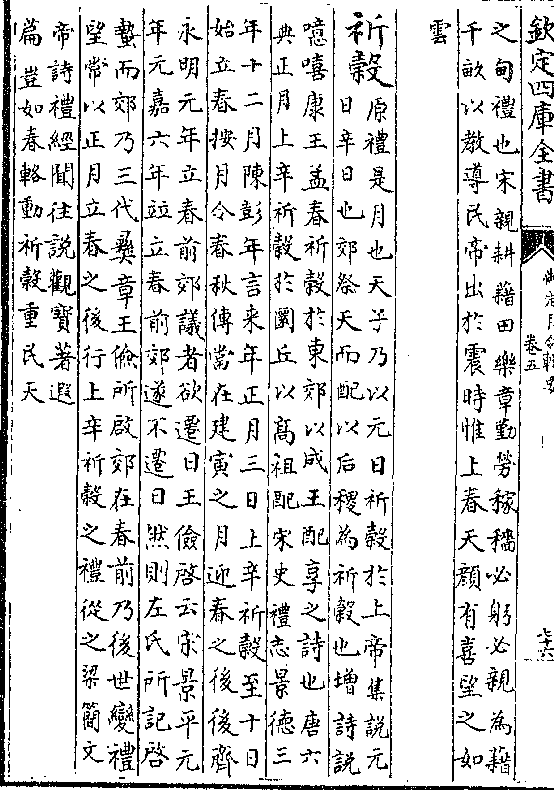 欽定四庫全書
卷五
之甸禮也宋親耕藉田樂章勤勞稼穡必躬必親為藉
千畝以教導民帝出於震時惟上春天顔有喜望之如
雲
祈穀
原禮是月也天子乃以元日祈穀於上帝集說元
日辛日也郊祭天而配以后稷為祈穀也增詩說
噫嘻康王孟春祈穀於東郊以成王配享之詩也唐六
典正月上辛祈穀於圜丘以高祖配宋史禮志景德三
年十二月陳彭年言来年正月三日上辛祈穀至十日
始立春按月令春秋傳當在建寅之月迎春之後後齊
永明元年立春前郊議者欲遷日王儉啓云宋景平元
年元嘉六年竝立春前郊遂不遷日然則左氏所記啓
蟄而郊乃三代彝章王儉所啟郊在春前乃後世變禮
望常以正月立春之後行上辛祈穀之禮從之梁簡文
帝詩禮經聞往說觀寶著遐
篇豈如春輅動祈穀重民天